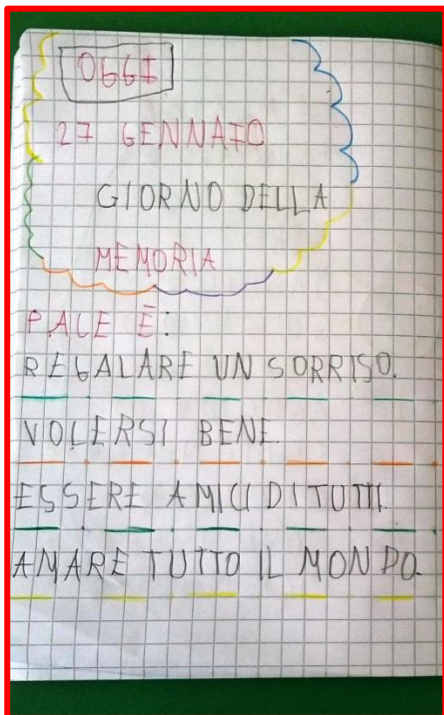 OGGI
27 GENNAIO
GIORNO DELLA
MEMORIA
PACE È:
REGALARE UN SORRISO.
VOLERSI BENE.
ESSERE AMICI DI TUTTI.
AMARE TUTTO IL MONDO.